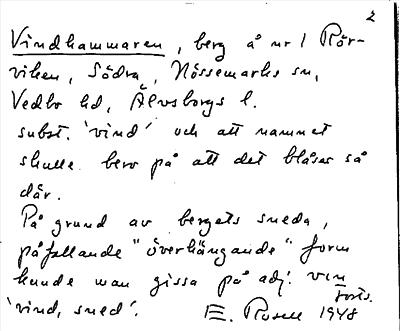 2
Vindhammaren, berg å nr 1 Rör-
viken, Södra, Nössemarks sn,
Vedbo hd, Älvsborgs l.
subst. 'vind' och att namnet
skulle bero på att det blåser så
där.
På grund av bergets sneda,
påfallande "överhängande" form
kunde man gissa på adj. vin
forts.
'vind, sned'. E. Rosell 1948